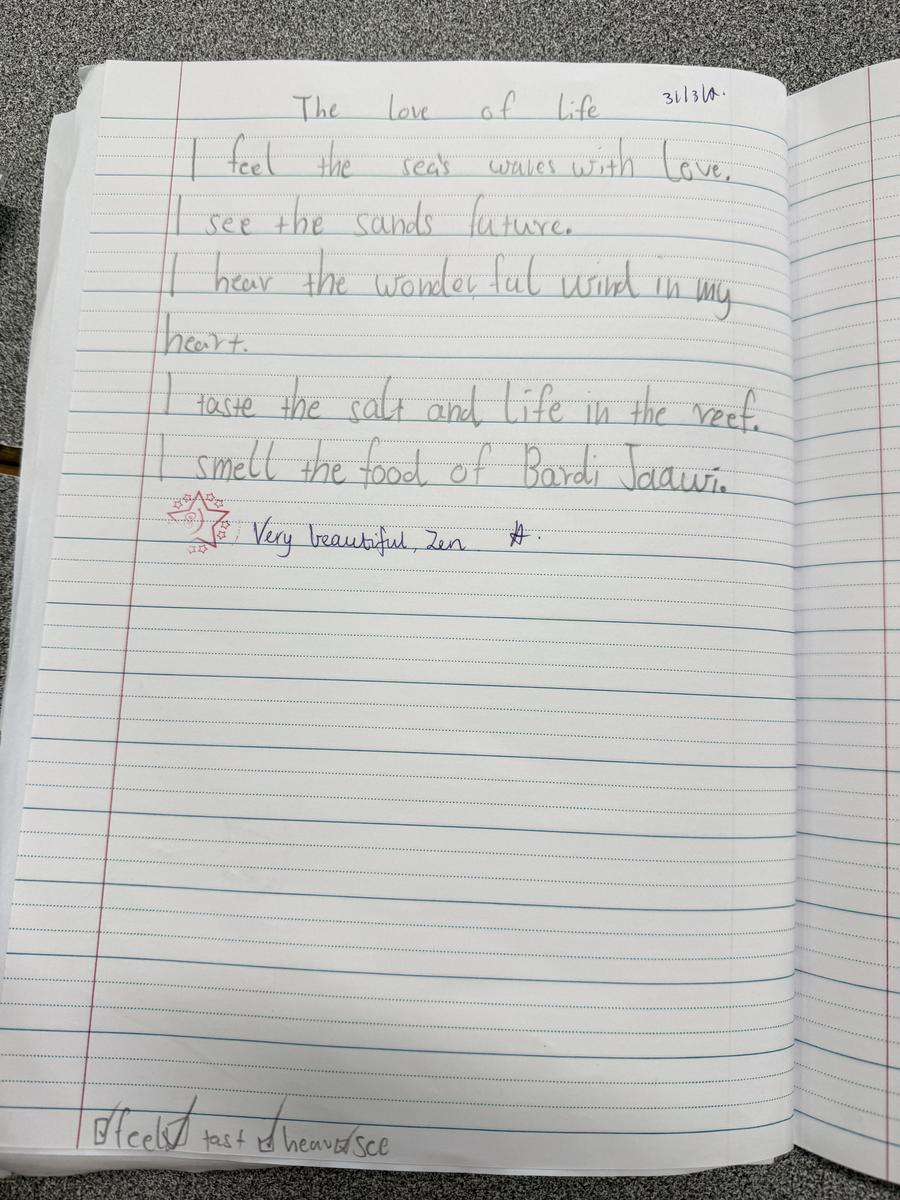 The love of life
I feel the sea's waves with Love.
I see the sands future.
I hear the wonderful wind in my
heart.
I taste the salt and life in the reef.
I smell the food of Bardi Jaawi.
Very beautiful, Zen
feel tast hear see